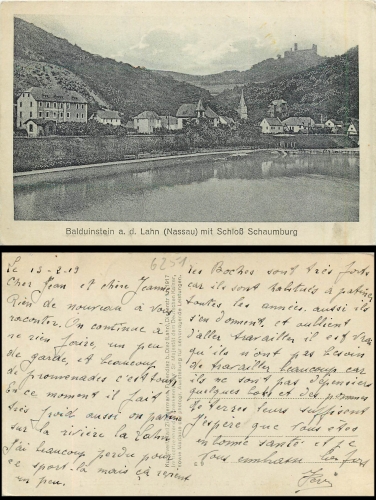 Balduinstein a. d. Lahn (Nassau) mit Schloß Schaumburg
Le 15-2-19
6251
Cher Jean et chère Jeanne
Rien de nouveau à vous
raconter. On continue à
ne rien faire, un peu
de garde, et beaucoup
de promenades c'est tout
En ce moment il fait
très froid aussi on patine
sur la rivière la Lahn
J'ai beaucoup perdu pour
ce sport-là mais çà revient
un peu.
les Boches sont très forts
car ils sont habitués à patiner
toutes les années. aussi ils
s'en donnent, et oublient
d'aller travailler il est vrai
qu'ils n'ont pas besoin
de travailler beaucoup car
ils ne sont pas dépensiers
quelques lots et des pommes
de terre leurs suffisent
J'espère que vous êtes
en bonne santé et je
vous embrasse bien fort